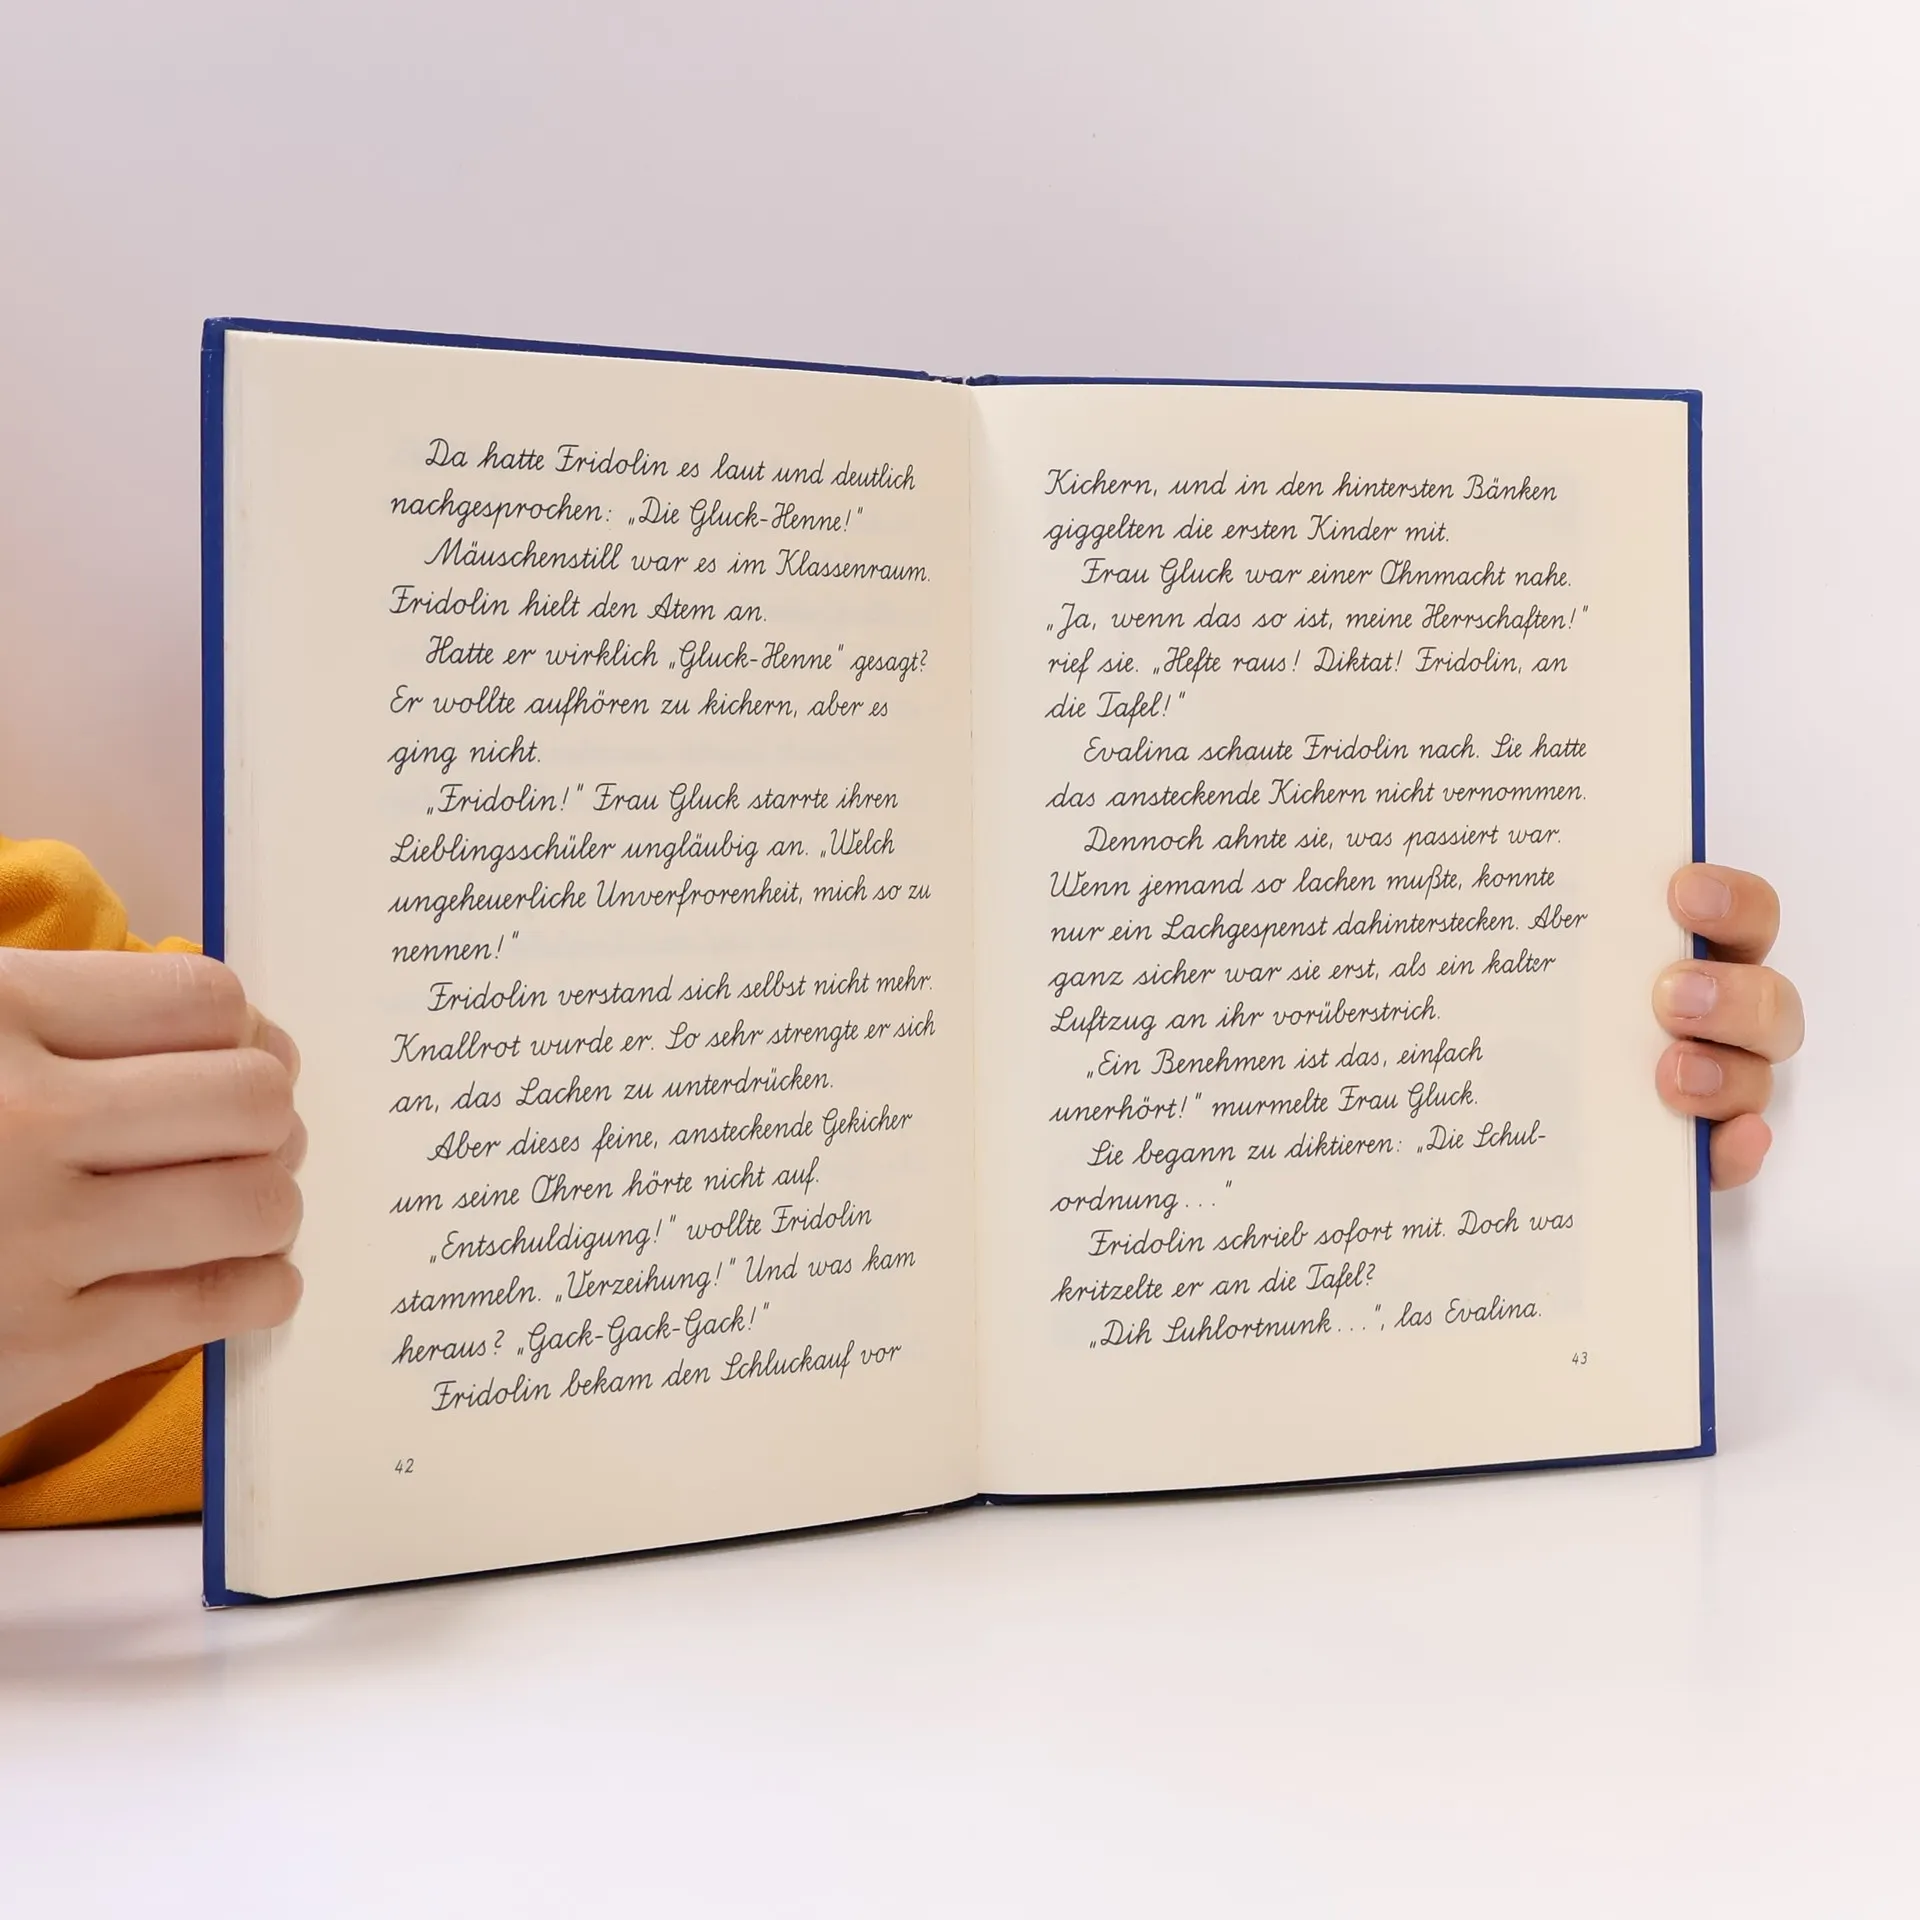 Da hatte Fridolin es laut und deutlich
nachgesprochen: „Die Gluck-Henne!"
Mäuschenstill war es im Klassenraum.
Fridolin hielt den Atem an.
Hatte er wirklich „Gluck-Henne" gesagt?
Er wollte aufhören zu kichern, aber es
ging nicht.
„Fridolin!" Frau Gluck starrte ihren
Lieblingsschüler ungläubig an. „Welch
ungeheuerliche Unverfrorenheit, mich so zu
nennen!"
Fridolin verstand sich selbst nicht mehr.
Knallrot wurde er. So sehr strengte er sich
an, das Lachen zu unterdrücken.
Aber dieses feine, ansteckende Gekicher
um seine Ohren hörte nicht auf.
„Entschuldigung!" wollte Fridolin
stammeln. „Verzeihung!" Und was kam
heraus? „Gack-Gack-Gack!"
Fridolin bekam den Schluckauf vor
42
Kichern, und in den hintersten Bänken
giggelten die ersten Kinder mit.
Frau Gluck war einer Ohnmacht nahe.
„Ja, wenn das so ist, meine Herrschaften!"
rief sie. „Hefte raus! Diktat! Fridolin, an
die Tafel!"
Evalina schaute Fridolin nach. Sie hatte
das ansteckende Kichern nicht vernommen.
Dennoch ahnte sie, was passiert war.
Wenn jemand so lachen mußte, konnte
nur ein Lachgespenst dahinterstecken. Aber
ganz sicher war sie erst, als ein kalter
Luftzug an ihr vorüberstrich.
„Ein Benehmen ist das, einfach
unerhört!" murmelte Frau Gluck.
Sie begann zu diktieren: „Die Schul-
ordnung..."
Fridolin schrieb sofort mit. Doch was
kritzelte er an die Tafel?
„Dih Suhlortnunk...", las Evalina.
43